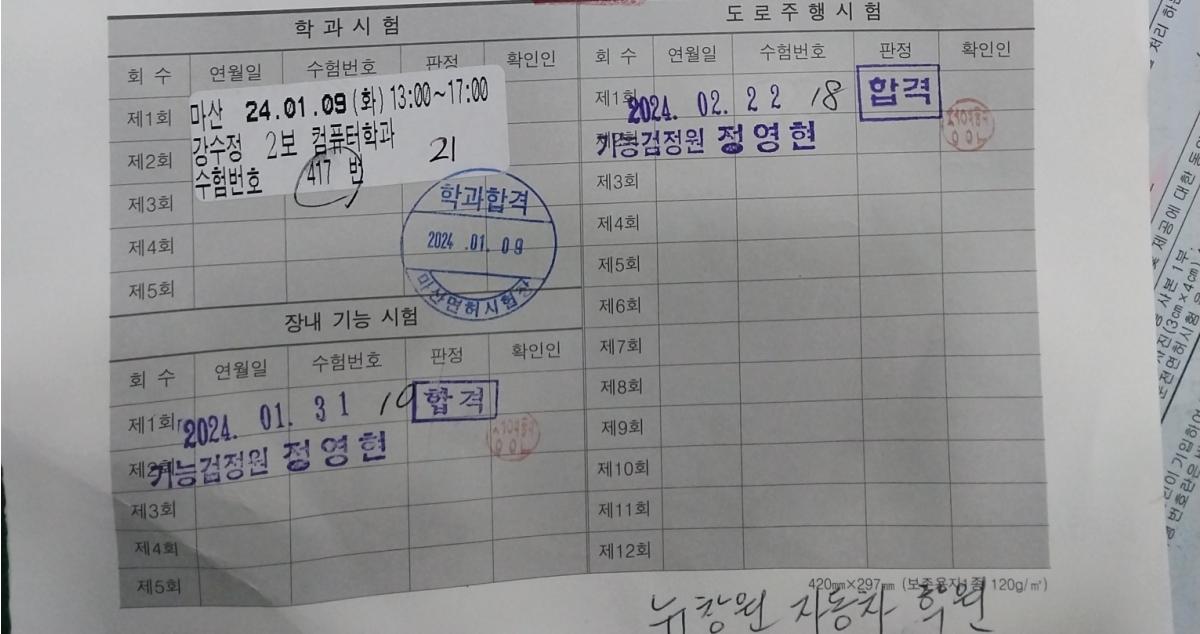 학 과 시 험
회 수 연월일 수험번호 판정 확인인
제1회
마산 24.01.09(화) 13:00~17:00
강수정 2보 컴퓨터학과
수험번호 417 번
21
제2회
제3회
학과합격
2024 .01. 09
마산면허시험장
제4회
제5회
장내 기능 시험
회 수 연월일 수험번호 판정 확인인
제1회 2024. 01. 31 10 합격
기능검정원 정영현
제3회
제4회
제5회
도 로 주 행 시 험
회 수 연월일 수험번호 판정 확인인
제1회 2024. 02. 22 18 합격
기능검정원 정영현
제3회
제4회
제5회
제6회
제7회
제8회
제9회
제10회
제11회
제12회
420㎜×297㎜ (보존용지1종 120g/㎡)
뉴창원 자동차 학원
처리
제공에 대한 동의
사본 1부
사진(3㎝×4㎝)
운전면허시험